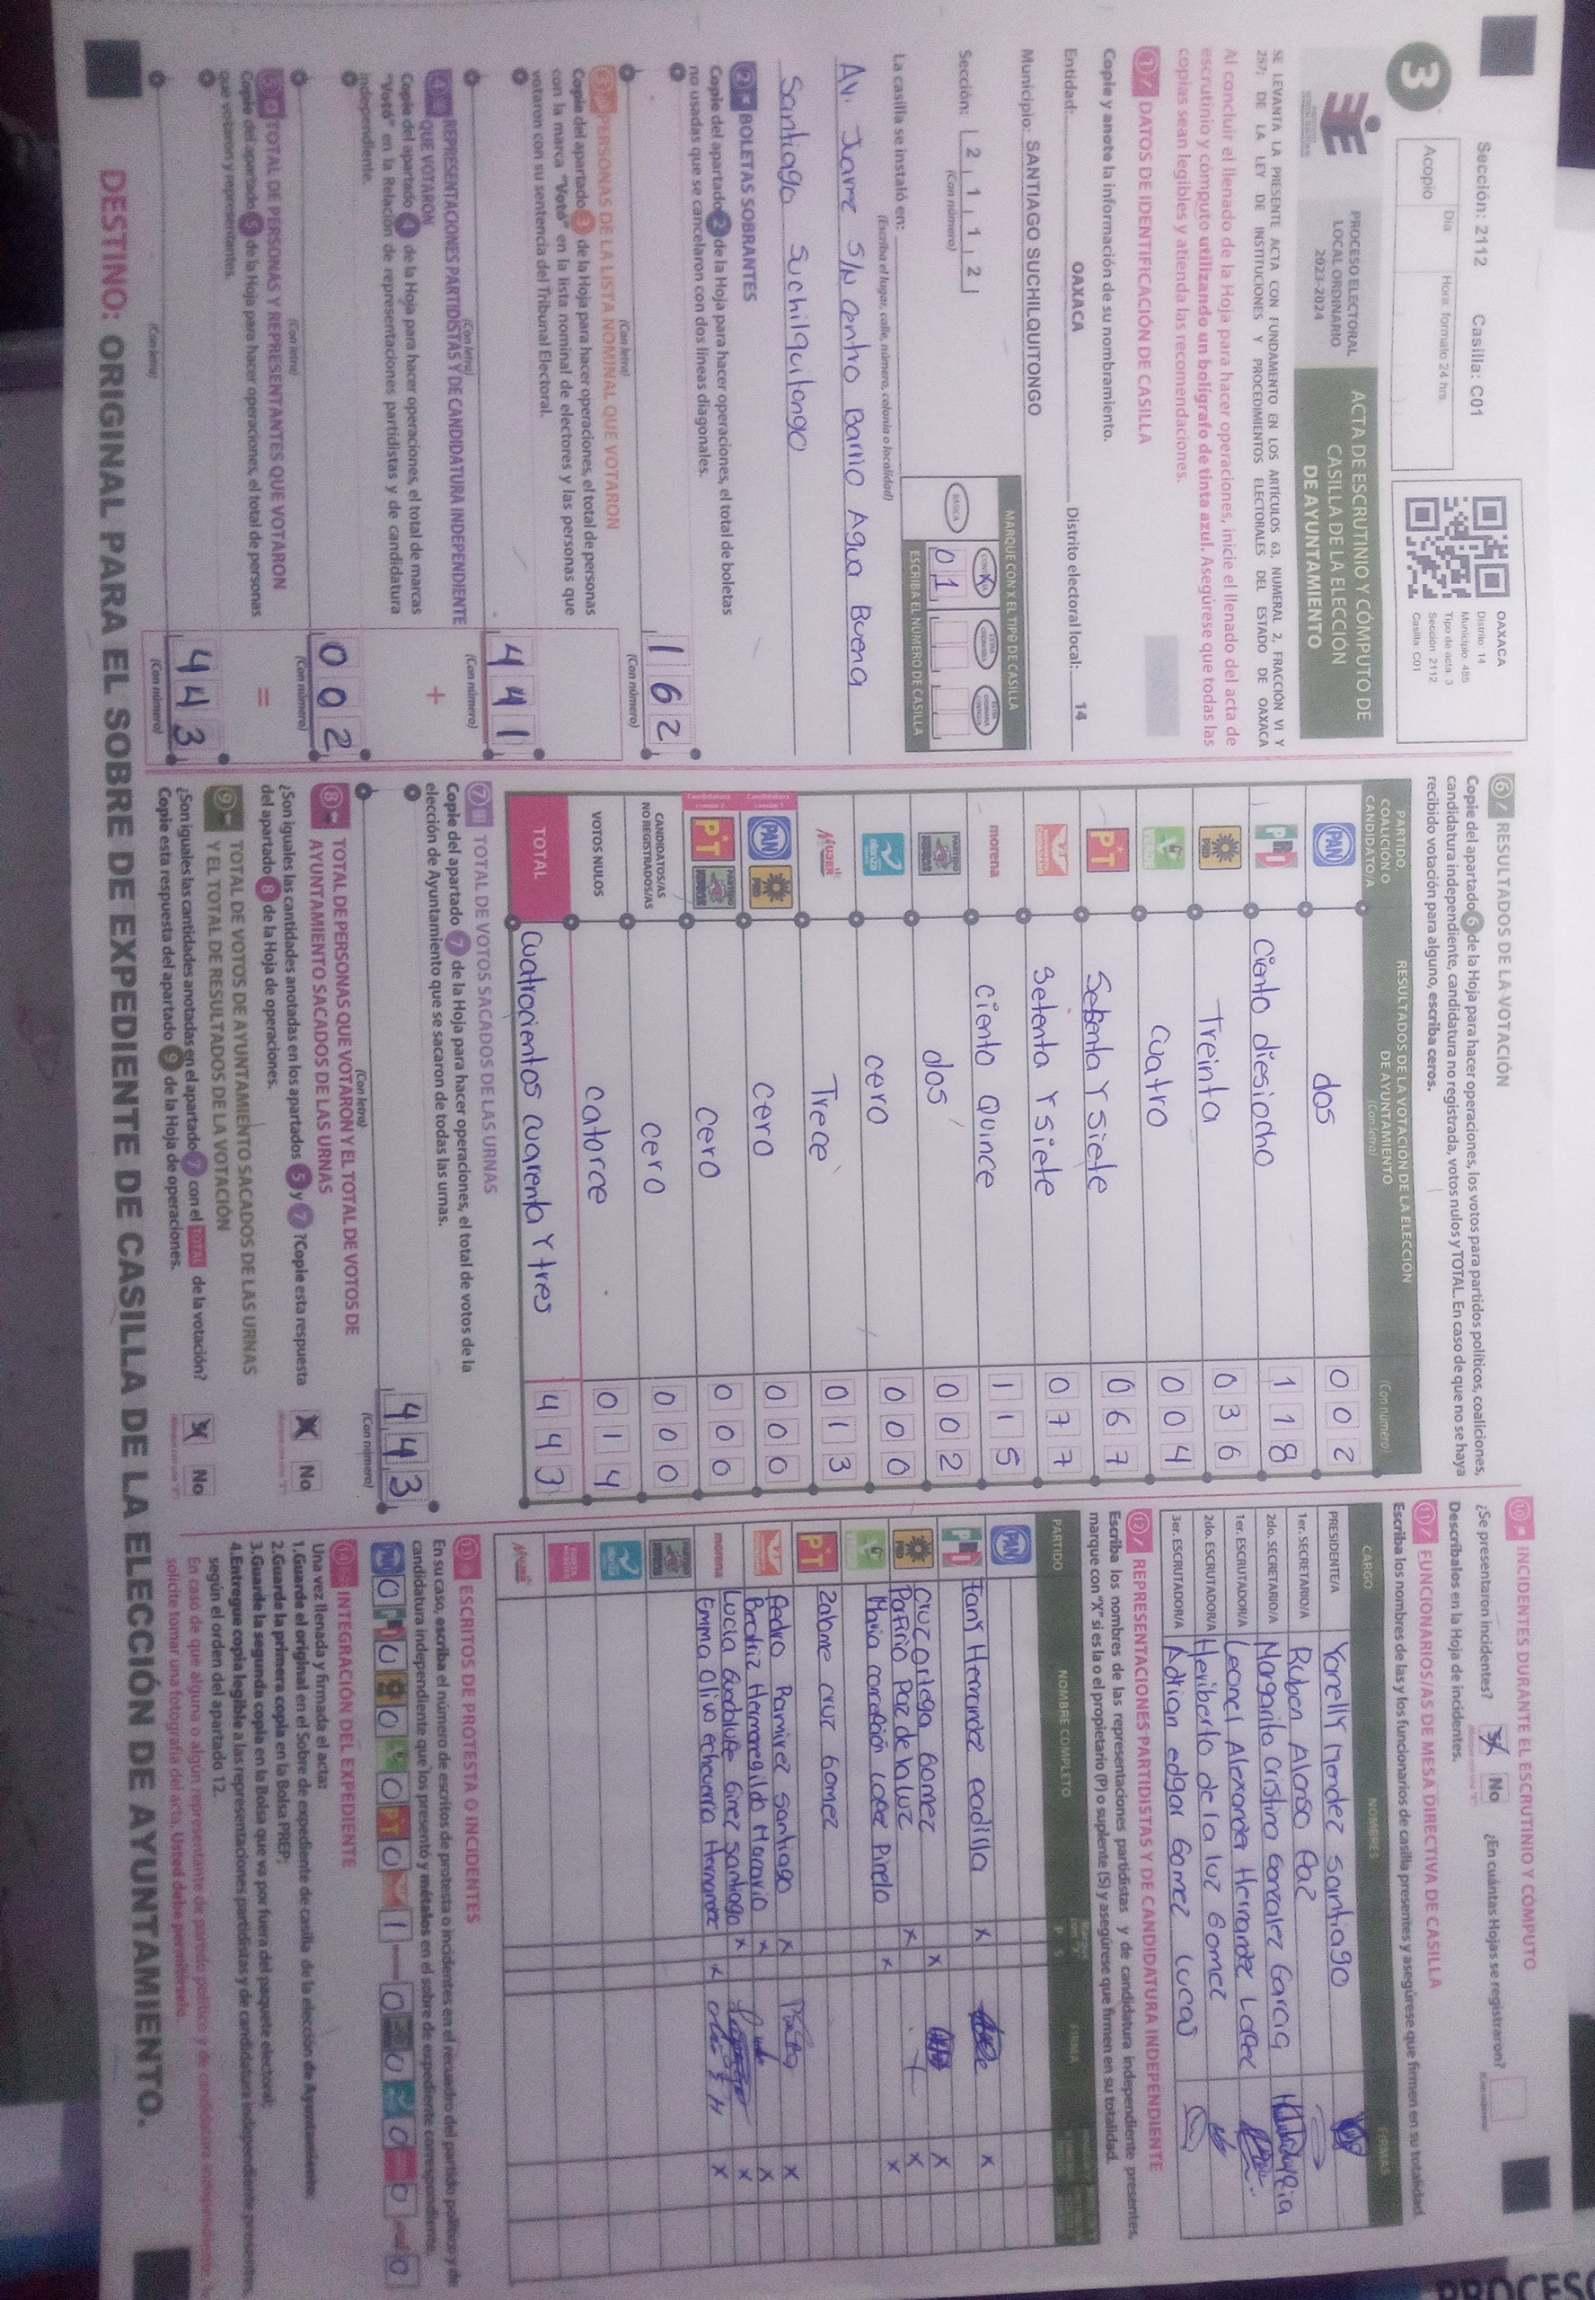 Sección: 2112 Casilla: C01
3
Día Hora: formato 24 hrs.
Acopio
OAXACA
Distrito: 14
Municipio: 485
Tipo de acta: 3
Sección: 2112
Casilla: C01
PROCESO ELECTORAL
LOCAL ORDINARIO
2023-2024
ACTA DE ESCRUTINIO Y CÓMPUTO DE
CASILLA DE LA ELECCIÓN
DE AYUNTAMIENTO
SE LEVANTA LA PRESENTE ACTA CON FUNDAMENTO EN LOS ARTÍCULOS 63, NUMERAL 2, FRACCIÓN VI Y
257; DE LA LEY DE INSTITUCIONES Y PROCEDIMIENTOS ELECTORALES DEL ESTADO DE OAXACA
Al concluir el llenado de la Hoja para hacer operaciones, inicie el llenado del acta de
escrutinio y cómputo utilizando un bolígrafo de tinta azul. Asegúrese que todas las
copias sean legibles y atienda las recomendaciones.
1 DATOS DE IDENTIFICACIÓN DE CASILLA
Copie y anote la información de su nombramiento.
Entidad: OAXACA Distrito electoral local: 14
Municipio: SANTIAGO SUCHILQUITONGO
Sección: 2 1 1 2
(Con número)
MARQUE CON X EL TIPO DE CASILLA
BÁSICA
X
0 1
ESCRIBA EL NÚMERO DE CASILLA
La casilla se instaló en:
(Escriba el lugar, calle, número, colonia o localidad)
Av. Juarez S/N centro Barrio Agua Buena
Santiago Suchilquitongo
2 BOLETAS SOBRANTES
Copie del apartado 2 de la Hoja para hacer operaciones, el total de boletas
no usadas que se cancelaron con dos líneas diagonales.
1 6 2
(Con letra) (Con número)
3 PERSONAS DE LA LISTA NOMINAL QUE VOTARON
Copie del apartado 3 de la Hoja para hacer operaciones, el total de personas
con la marca "Votó" en la lista nominal de electores y las personas que
votaron con su sentencia del Tribunal Electoral.
4 4 1
(Con letra) (Con número)
4 REPRESENTACIONES PARTIDISTAS Y DE CANDIDATURA INDEPENDIENTE
QUE VOTARON +
Copie del apartado 4 de la Hoja para hacer operaciones, el total de marcas
"Votó" en la Relación de representaciones partidistas y de candidatura
independiente.
0 0 2
(Con letra) (Con número)
5 TOTAL DE PERSONAS Y REPRESENTANTES QUE VOTARON =
Copie del apartado 5 de la Hoja para hacer operaciones, el total de personas
que votaron y representantes.
4 4 3
(Con letra) (Con número)
6 RESULTADOS DE LA VOTACIÓN
Copie del apartado 6 de la Hoja para hacer operaciones, los votos para partidos políticos, coaliciones,
candidatura independiente, candidatura no registrada, votos nulos y TOTAL. En caso de que no se haya
recibido votación para alguno, escriba ceros.
PARTIDO, COALICIÓN O CANDIDATO/A RESULTADOS DE LA VOTACIÓN DE LA ELECCIÓN DE AYUNTAMIENTO (Con letra) (Con número)
PAN dos 0 0 2
PRI Ciento diesiocho 1 1 8
PRD Treinta 0 3 6
cuatro 0 0 4
PT Sesenta Y Siete 0 6 7
Setenta Y siete 0 7 7
morena ciento Quince 1 1 5
dos 0 0 2
alianza cero 0 0 0
Mujer Trece 0 1 3
PAN PRD cero 0 0 0
PT cero 0 0 0
CANDIDATOS/AS NO REGISTRADOS/AS cero 0 0 0
VOTOS NULOS catorce 0 1 4
TOTAL cuatrocientos cuarenta Y tres 4 4 3
7 TOTAL DE VOTOS SACADOS DE LAS URNAS
Copie del apartado 7 de la Hoja para hacer operaciones, el total de votos de la
elección de Ayuntamiento que se sacaron de todas las urnas.
4 4 3
(Con letra) (Con número)
8 TOTAL DE PERSONAS QUE VOTARON Y EL TOTAL DE VOTOS DE
AYUNTAMIENTO SACADOS DE LAS URNAS
¿Son iguales las cantidades anotadas en los apartados 5 y 7 ?Copie esta respuesta
del apartado 8 de la Hoja de operaciones.
X No
9 TOTAL DE VOTOS DE AYUNTAMIENTO SACADOS DE LAS URNAS
Y EL TOTAL DE RESULTADOS DE LA VOTACIÓN
¿Son iguales las cantidades anotadas en el apartado 7 con el TOTAL de la votación?
Copie esta respuesta del apartado 9 de la Hoja de operaciones.
No
10 INCIDENTES DURANTE EL ESCRUTINIO Y CÓMPUTO
¿Se presentaron incidentes? No ¿En cuántas Hojas se registraron?
Descríbalos en la Hoja de incidentes.
11 FUNCIONARIOS/AS DE MESA DIRECTIVA DE CASILLA
Escriba los nombres de las y los funcionarios de casilla presentes y asegúrese que firmen en su totalidad.
CARGO NOMBRES FIRMAS
PRESIDENTE/A Yanelly Mendez Santiago
1er. SECRETARIO/A Ruben Alonso Paz
2do. SECRETARIO/A Margarita cristina Gonzalez Garcia
1er. ESCRUTADOR/A Leonel Alexander Hernandez Lopez
2do. ESCRUTADOR/A Heriberto de la luz Gomez
3er. ESCRUTADOR/A Adrian edgar Gomez Lucas
12 REPRESENTACIONES PARTIDISTAS Y DE CANDIDATURA INDEPENDIENTE
Escriba los nombres de las representaciones partidistas y de candidatura independiente presentes,
marque con "X" si es la o el propietario (P) o suplente (S) y asegúrese que firmen en su totalidad.
PARTIDO NOMBRE COMPLETO P S FIRMA
PAN
PRI Hernandez padilla X X
Cruz ortega Gomez X X
PRD Porfirio Paz de la luz X X
Maria Lopez Pinelo X X
PT Zabme cruz Gomez
Pedro Ramirez Santiago X X
Beatriz Hermenegildo Macario X X
Lucia Guadalupe Santiago X X
morena Emma Oliva echeverria Hernandez X X
alianza
Mujer
13 ESCRITOS DE PROTESTA O INCIDENTES
En su caso, escriba el número de escritos de protesta o incidentes en el recuadro del partido político y de
candidatura independiente que los presentó y métalos en el sobre de expediente correspondiente.
14 INTEGRACIÓN DEL EXPEDIENTE
Una vez llenada y firmada el acta:
1.Guarde el original en el Sobre de expediente de casilla de la elección de Ayuntamiento;
2.Guarde la primera copia en la Bolsa PREP;
3.Guarde la segunda copia en la Bolsa que va por fuera del paquete electoral;
4.Entregue copia legible a las representaciones partidistas y de candidatura independiente presentes,
según el orden del apartado 12.
En caso de que alguna o algún representante de partido político y de candidatura independiente,
solicite tomar una fotografía del acta, Usted debe permitírselo.
DESTINO: ORIGINAL PARA EL SOBRE DE EXPEDIENTE DE CASILLA DE LA ELECCIÓN DE AYUNTAMIENTO.
PROCESO